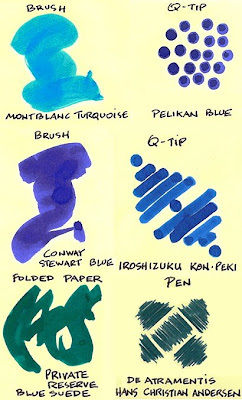 BRUSH
Q-TIP
MONTBLANC TURQUOISE
PELIKAN BLUE
BRUSH
Q-TIP
CONWAY
STEWART BLUE
IROSHIZUKU KON-PEKI
FOLDED PAPER
PEN
PRIVATE
RESERVE
BLUE SUEDE
DE ATRAMENTIS
HANS CHRISTIAN ANDERSEN